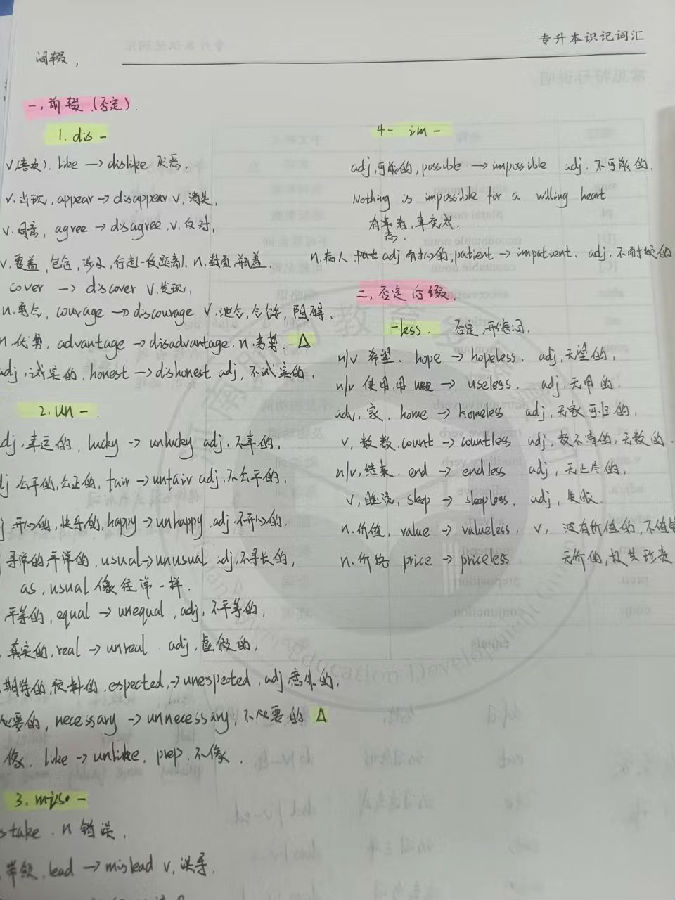 专升本识记词汇
词缀,
一, 前缀 (否定).
1. dis-
v.(喜欢). like → dislike 厌恶,
v. 出现, appear → disappear v, 消失,
v. 同意, agree → disagree, v. 反对,
v. 覆盖, 包含, 涉及, 行走一段距离. n. 封面
cover → discover v. 发现,
courage → discourage v.
n 优势, advantage → disadvantage. n. 劣势 △
adj, 诚实的, honest → dishonest adj, 不诚实的,
2. un-
dj. 幸运的, lucky → unlucky adj, 不幸的,
公平的, 公正的, fair → unfair adj 不公平的,
开心的, 快乐的, happy → unhappy adj 不开心的
寻常的, 平常的, usual → unusual adj, 不寻常的,
as, usual 像往常一样.
平等的, equal → unequal, adj, 不平等的,
真实的, real → unreal adj, 虚假的,
期待的, 预料的 expected, → unexpected, adj 意外的,
必要的, necessary → unnecessary, 不必要的 △
像, like → unlike, prep, 不像.
3. mise-
stake. n 错误,
带领, lead → mislead v, 误导.
4- im-
adj, 可能的, possible → impossible adj. 不可能的.
Nothing is impossible for a willing heart
有志者, 事竟成.
n. 病人. adj 有耐心的, patient → impatient. adj. 不耐烦的
二, 否定后缀,
-less. 否定, 形容词,
n/v 希望. hope → hopeless. adj, 无望的,
n/v 使用 use → useless, adj 无用的.
adv, 家, home → homeless adj, 无家可归的,
v, 数数, count → countless adj, 数不清的, 无数的.
n/v, 结束 end → endless adj, 无止尽的,
v, 睡觉, sleep → sleepless, adj, 失眠.
n. 价值, value → valueless. v, 没有价值的, 不值钱
n. 价格 price → priceless 无价的,